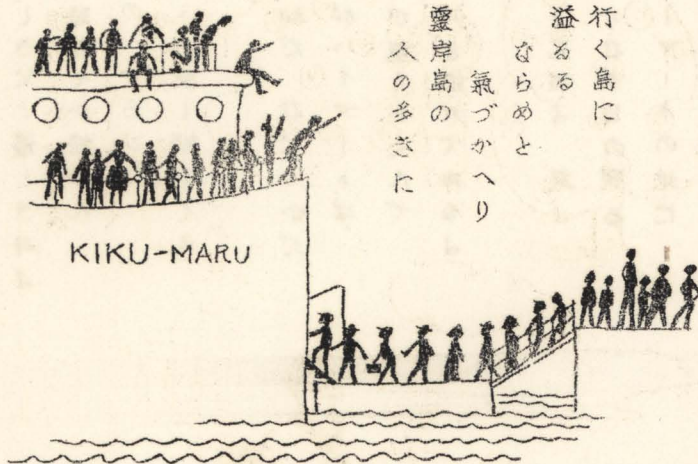 行く島に
溢るる
ならめと
氣づかへり
霊岸島の
人の多さに
KIKU-MARU